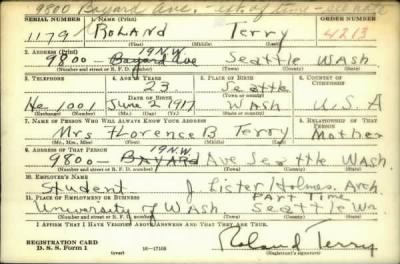 9800 Bayard Ave. - ext. of time - see note
SERIAL NUMBER 1. NAME (Print) ORDER NUMBER
1179 ROLAND Terry 4213
(First) (Middle) (Last)
2. ADDRESS (Print) 19 N.W.
9800 - Bayard Ave Seattle WASH
(Number and street or R. F. D. number) (Town) (County) (State)
3. TELEPHONE 4. AGE IN YEARS 5. PLACE OF BIRTH 6. COUNTRY OF CITIZENSHIP
23 Seattle
(Town or county)
DATE OF BIRTH
He 1001 June 2 1917 WASH U.S.A
(Exchange) (Number) (Mo.) (Day) (Yr.) (State or country)
7. NAME OF PERSON WHO WILL ALWAYS KNOW YOUR ADDRESS 8. RELATIONSHIP OF THAT PERSON
Mrs Florence B Terry Mother
(Mr., Mrs., Miss) (First) (Middle) (Last)
9. ADDRESS OF THAT PERSON 19 N.W.
9800 - BAYARD Ave Seattle WASH.
(Number and street or R. F. D. number) (Town) (County) (State)
10. EMPLOYER'S NAME
Student J. Lister Holmes, Arch.
11. PLACE OF EMPLOYMENT OR BUSINESS PART TIME
University of WASH Seattle Wa.
(Number and street or R. F. D. number) (Town) (County) (State)
I AFFIRM THAT I HAVE VERIFIED ABOVE ANSWERS AND THAT THEY ARE TRUE.
REGISTRATION CARD
D. S. S. Form 1 (over) 16-17105 Roland Terry